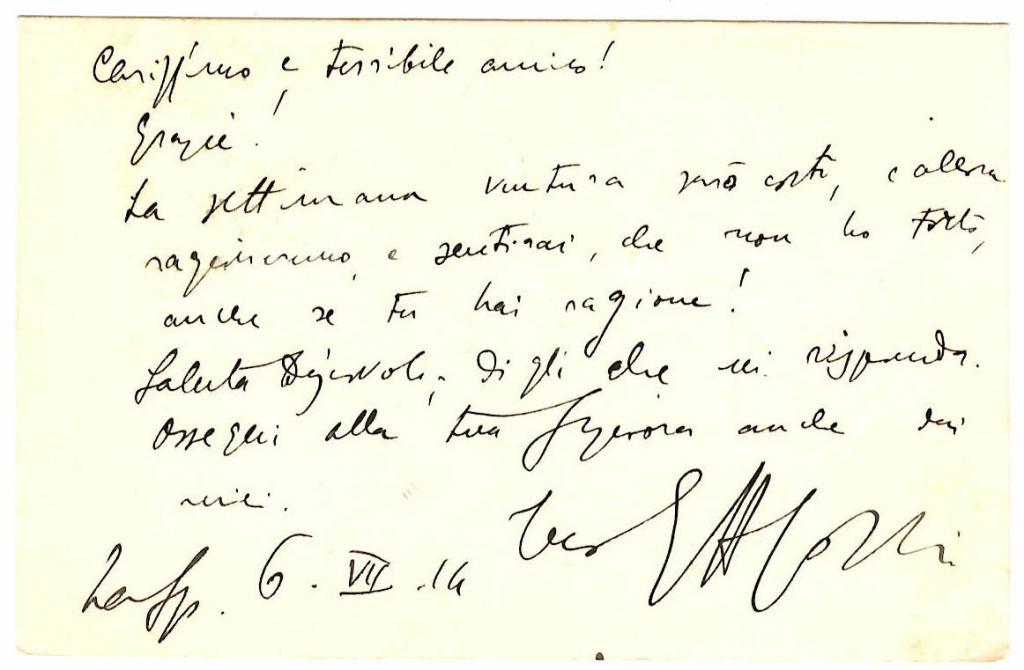 Carissimo e terribile amico!
Grazie!
La settimana ventura sarò costì, e allora
ragioneremo, e sentirai, che non ho torto,
anche se tu hai ragione!
Saluta e digli che mi risponda.
Ossequi alla tua Signora anche dai
miei.
tuo
La Sp. 6. VII. 14